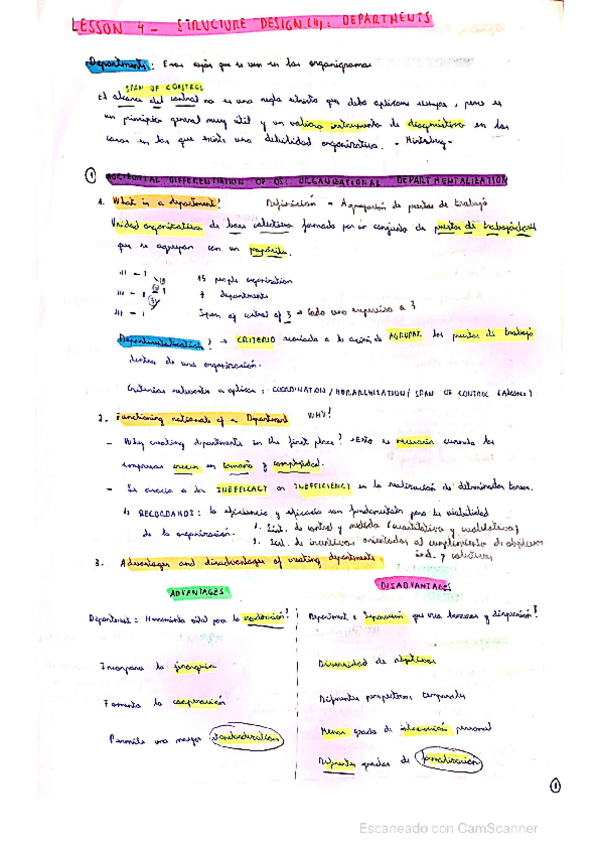 LESSON 4 - STRUCTURE DESIGN (II): DEPARTMENTS
Departments: Esas cajas que se ven en los organigramas
SPAN OF CONTROL
El alcance del control no es una regla estricta que deba aplicarse siempre, pero es
un principio general muy útil y un valioso instrumento de diagnóstico en los
casos en los que existe una debilidad organizativa. - Mintzberg -
① HORIZONTAL DIFFERENTIATION OF OS: ORGANIZATIONAL DEPARTMENTALIZATION
1. What is a department? Definición = Agrupación de puestos de trabajo
Unidad organizativa de base colectiva formada por un conjunto de puestos de trabajo
que se agrupan con un propósito.
III - I 15 people organization
III - I 7 departments
III - I Span of control of 3 → Cada uno supervisa a 3
Departmentalization → CRITERIO asociado a la acción de AGRUPAR los puestos de trabajo
dentro de una organización.
Criterios relevantes a aplicar: COORDINATION / HIERARCHISATION / SPAN OF CONTROL (Alcance)
2. Functioning rationals of a Department WHY?
- Why creating departments in the first place? → Esto es necesario cuando las
empresas crecen en tamaño y complejidad.
- Se asocia a la INEFFICACY or INEFFICIENCY en la realización de determinadas tareas.
↳ RECORDAMOS: la eficiencia y eficacia son fundamentales para la viabilidad
de la organización.
1. Sist. de control y medida (cuantitativa y cualitativa)
2. Sist. de incentivos orientados al cumplimiento de objetivos
ind. y colectivos
3. Advantages and disadvantages of creating departments
ADVANTAGES
Department: Herramienta vital para la coordinación!
Incorpora la jerarquía
Fomenta la cooperación
Permite una mayor standardization
DISADVANTAGES
Department = Separación que crea barreras y dispersión!
Diversidad de objetivos
Diferentes perspectivas temporales
Menor grado de interacción personal
Diferentes grados de formalización
①
Escaneado con CamScanner